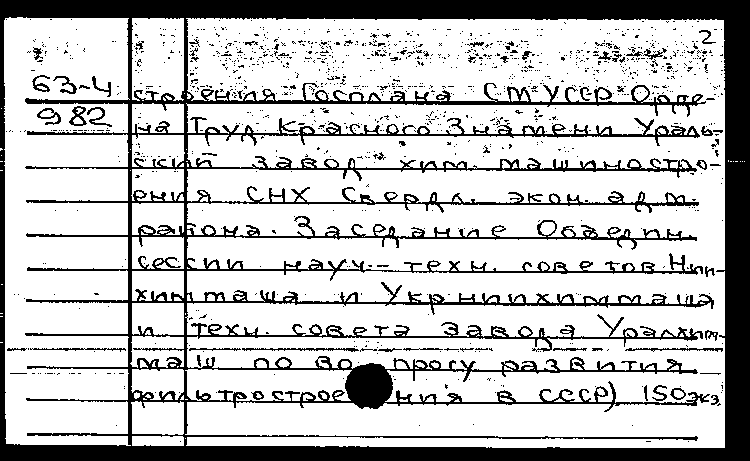 2
63-4 строения Госплана СМ УССР Орде-
982 на Труд. Красного Знамени Ураль-
ский завод хим. машиностро-
ения СНХ Свердл. экон. адм.
района. Заседание Объедин.
сессии науч.-техн. советов Нии-
химмаша и Укрниихиммаша
и техн. совета завода Уралхим-
маш по вопросу развития
фильтростроения в СССР) 150экз